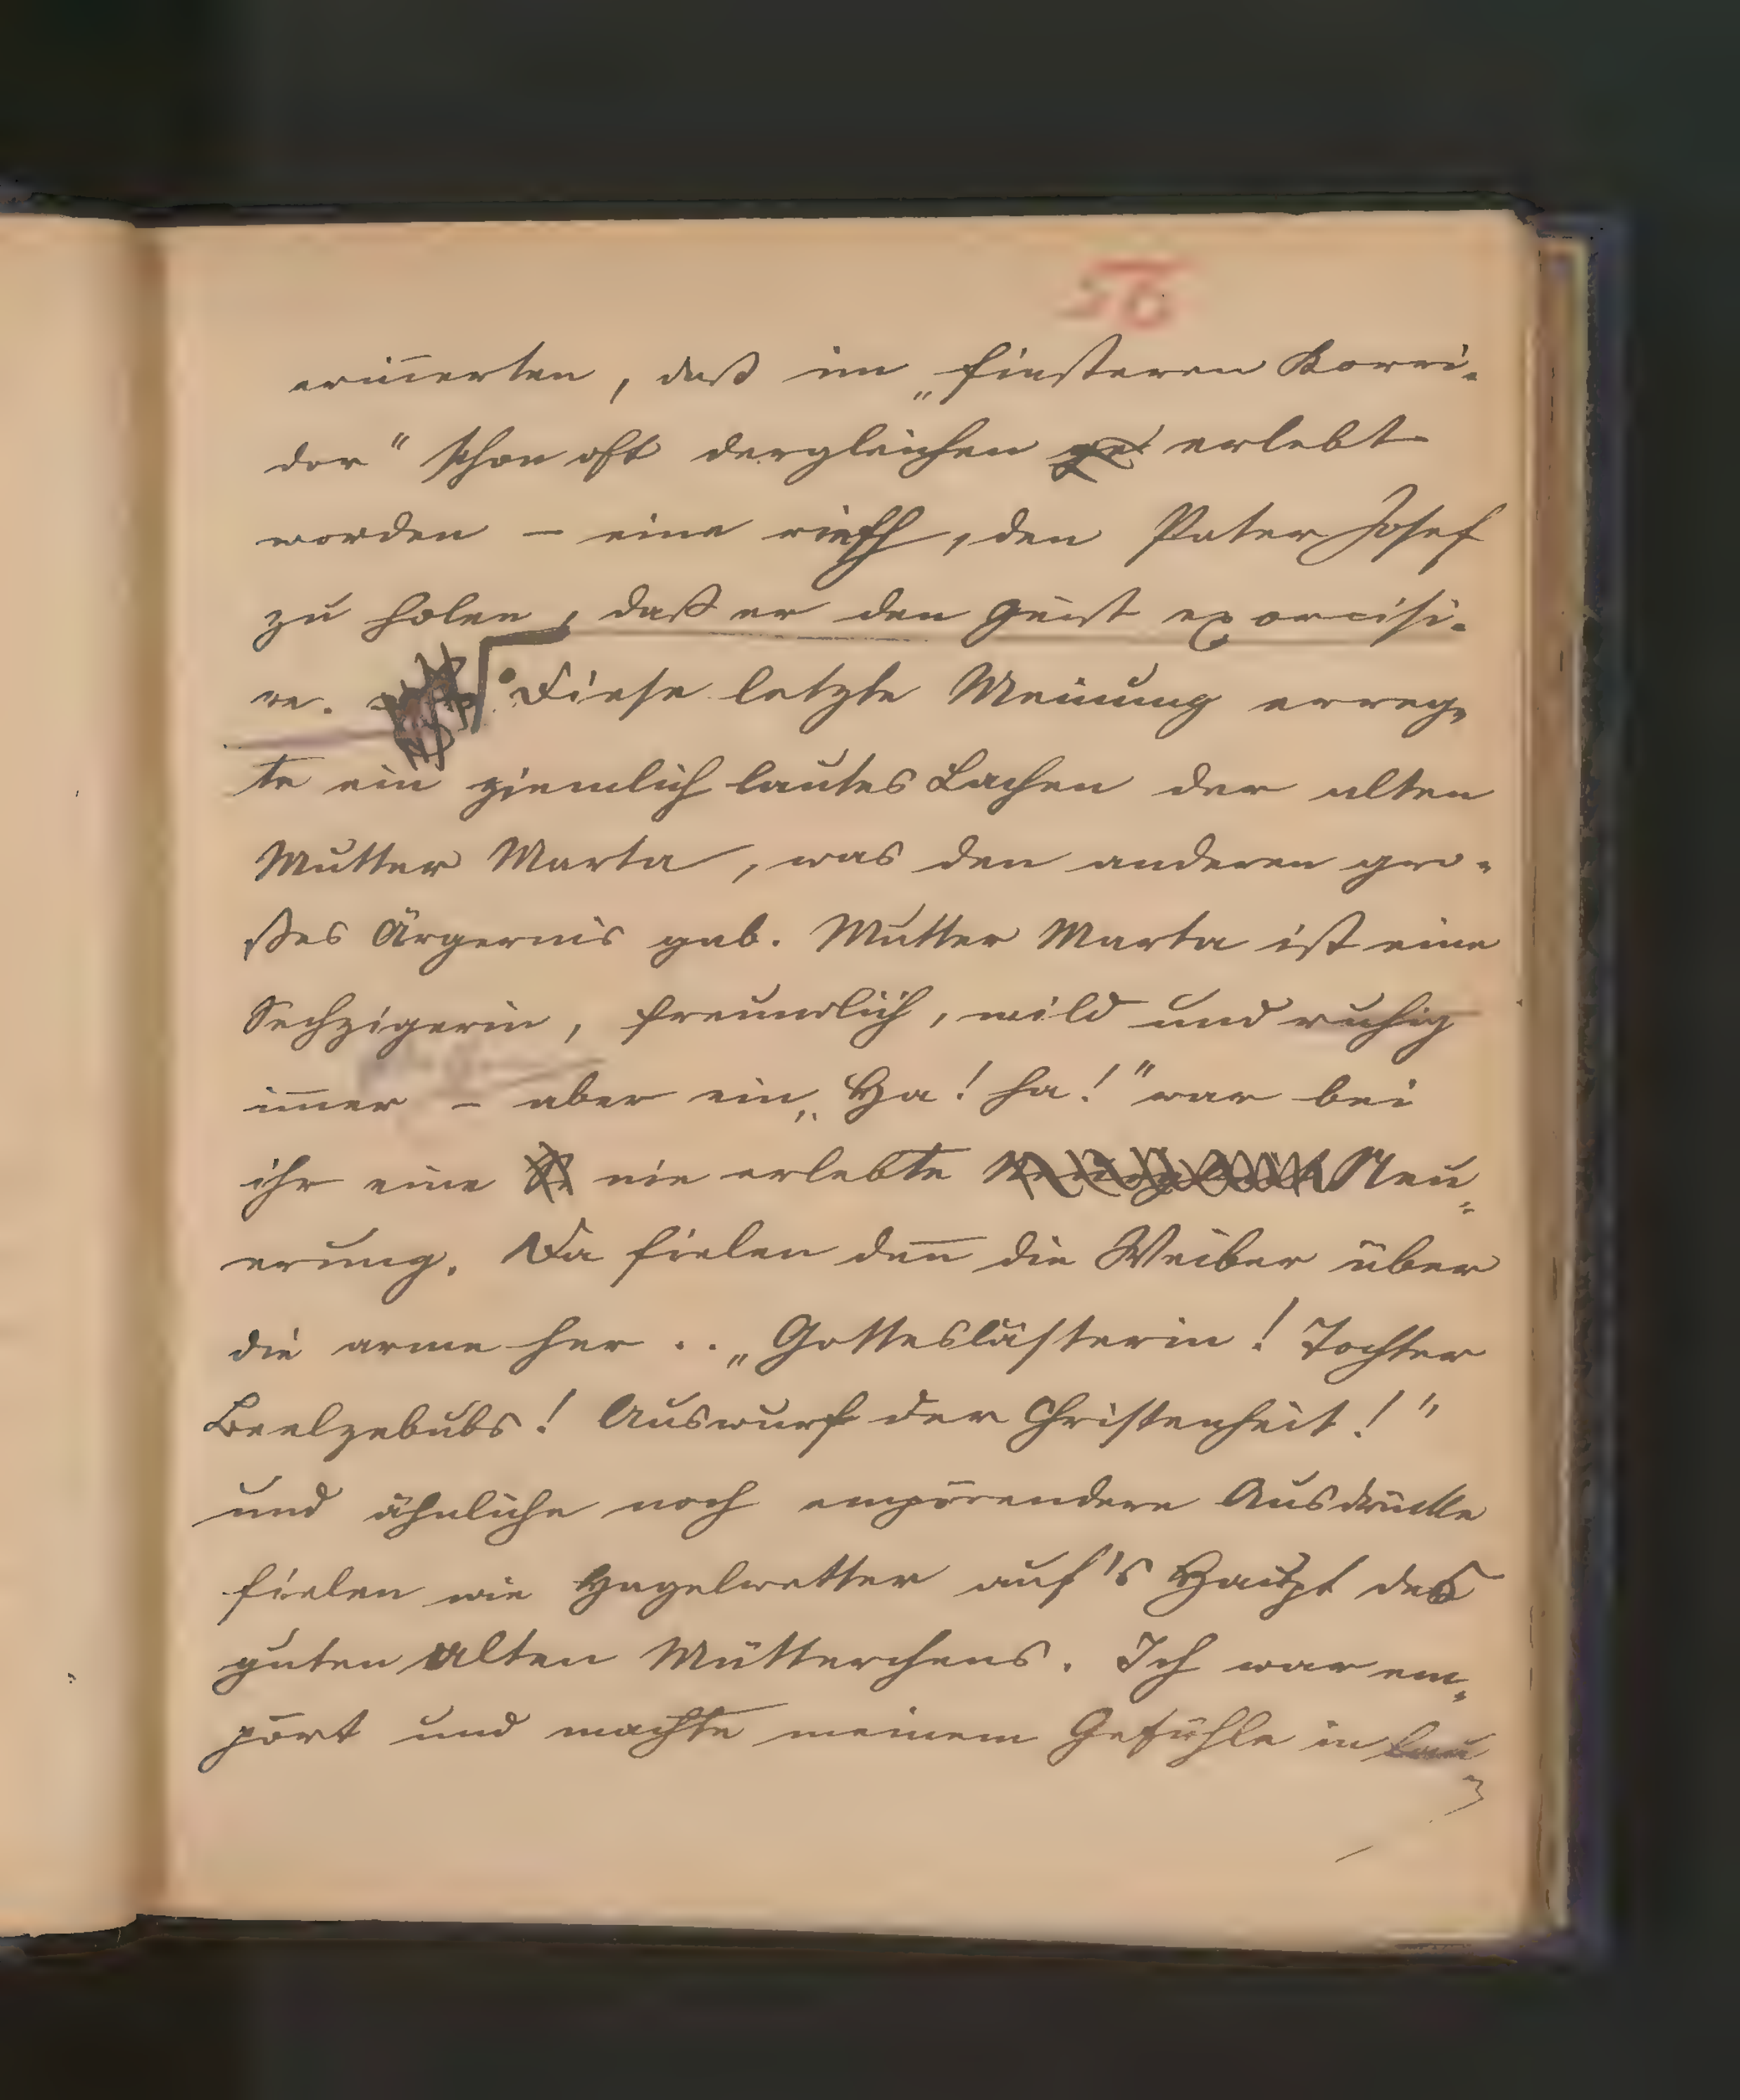 56
eriñerten, daß im „finsteren Korri-
dor“ schon oft dergleichen ge erlebt
worden – eine rieth, den Pater Josef
zu holen, daß er den Geist exorcisi-
re. Diese letzte Meinung erreg-
te ein ziemlich lautes Lachen der alten
Mutter Marta, was den anderen gro-
ßes Ärgernis gab. Mutter Marta ist eine
Sechzigerin, freundlich, mild und ruhig
im̃er – aber ein „Ha! ha!“ war bei
ihr eine nie erlebte Neu-
erung. Da fielen deñ die Weiber über
die arme her .. „Gotteslästerin! Tochter
Beelzebubs! Auswurf der Christenheit!“
und ähnliche noch empörendere Ausdrücke
fielen wie Hagelwetter auf's Haupt des
guten alten Mütterchens. Ich war em-
pört und machte meinem Gefühle in lau